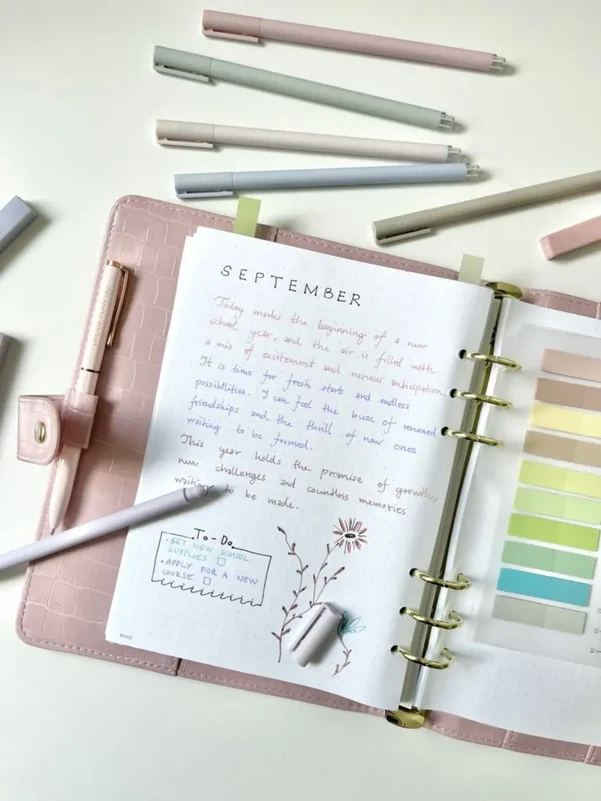 SEPTEMBER
Today marks the beginning of a new
school year, and the air is filled with
a mix of excitement and nervous anticipation.
It is time for fresh starts and endless
possibilities. I can feel the buzz of renewed
friendships and the thrill of new ones
waiting to be formed.
This year holds the promise of growth,
new challenges and countless memories
waiting to be made.
To-Do
• GET NEW SCHOOL
SUPPLIES
• APPLY FOR A NEW
COURSE